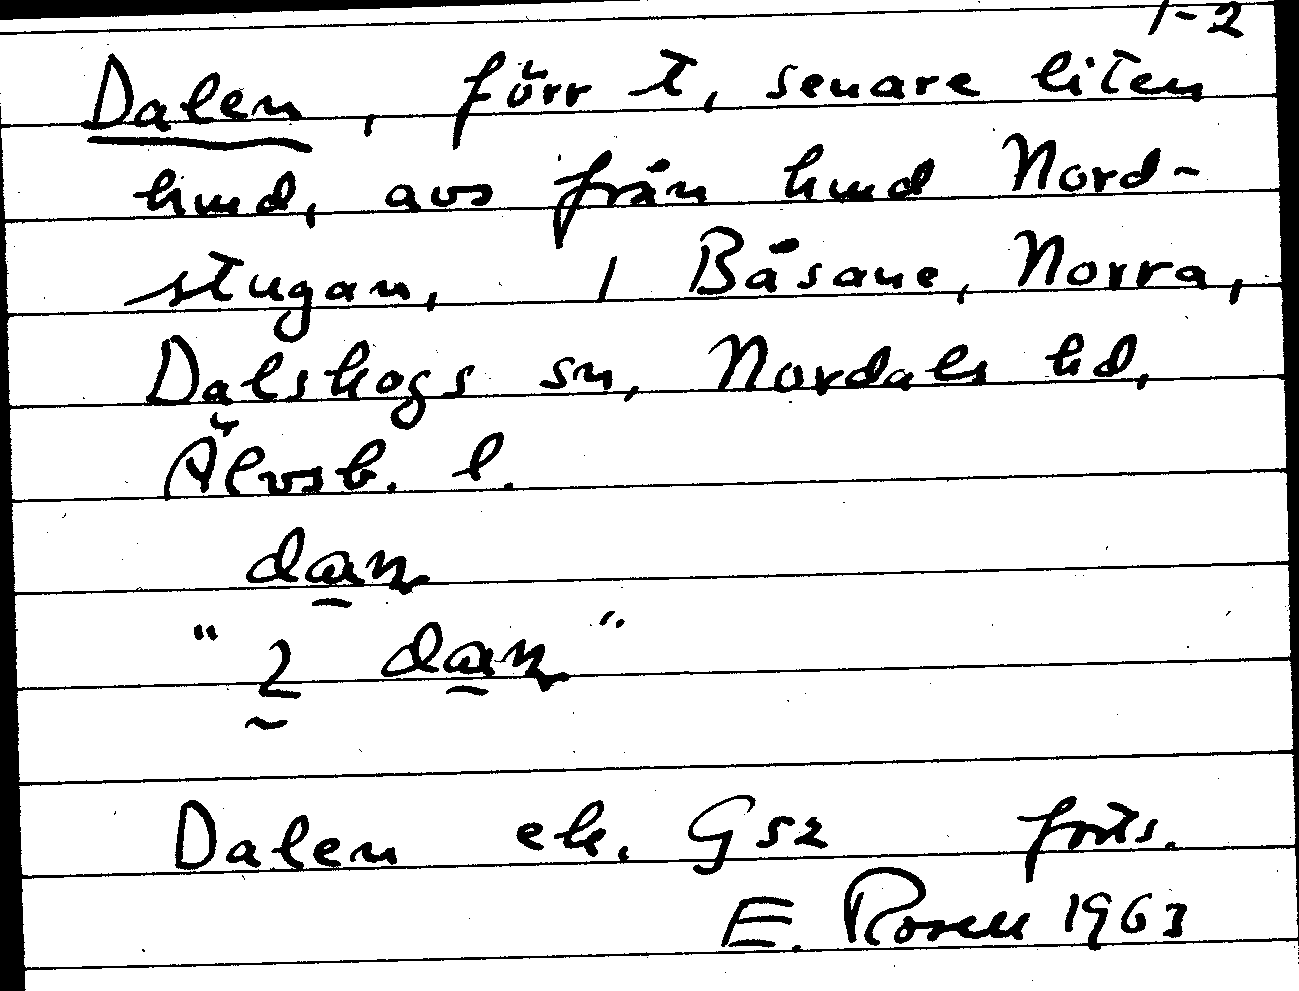 1-2
Dalen, förr t, senare liten
hmd, avs från hmd Nord-
stugan, i Båsane, Norra,
Dalskogs sn, Nordals hd,
Älvsb. l.
dan
"2 dan"
Dalen ek. Gsz forts.
E. Rosell 1963